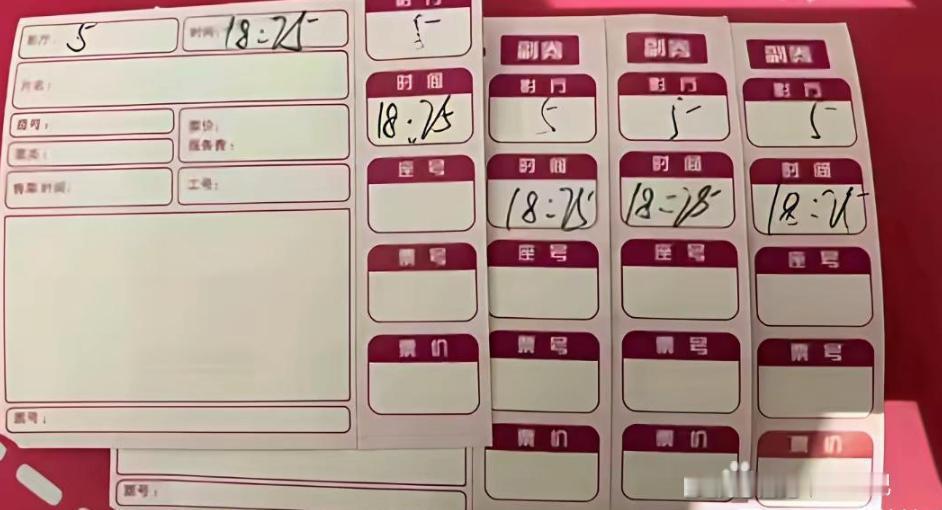 影厅: 5 时间: 18:25
片名:
座号: 票价:
服务费:
票类:
售票时间: 工号:
票号:
影厅
5
时间
18:25
座号
票号
票价
副券
影厅
5
时间
18:25
座号
票号
票价
副券
影厅
5
时间
18:25
座号
票号
票价
副券
影厅
5
时间
18:25
座号
票号
票价
票号: